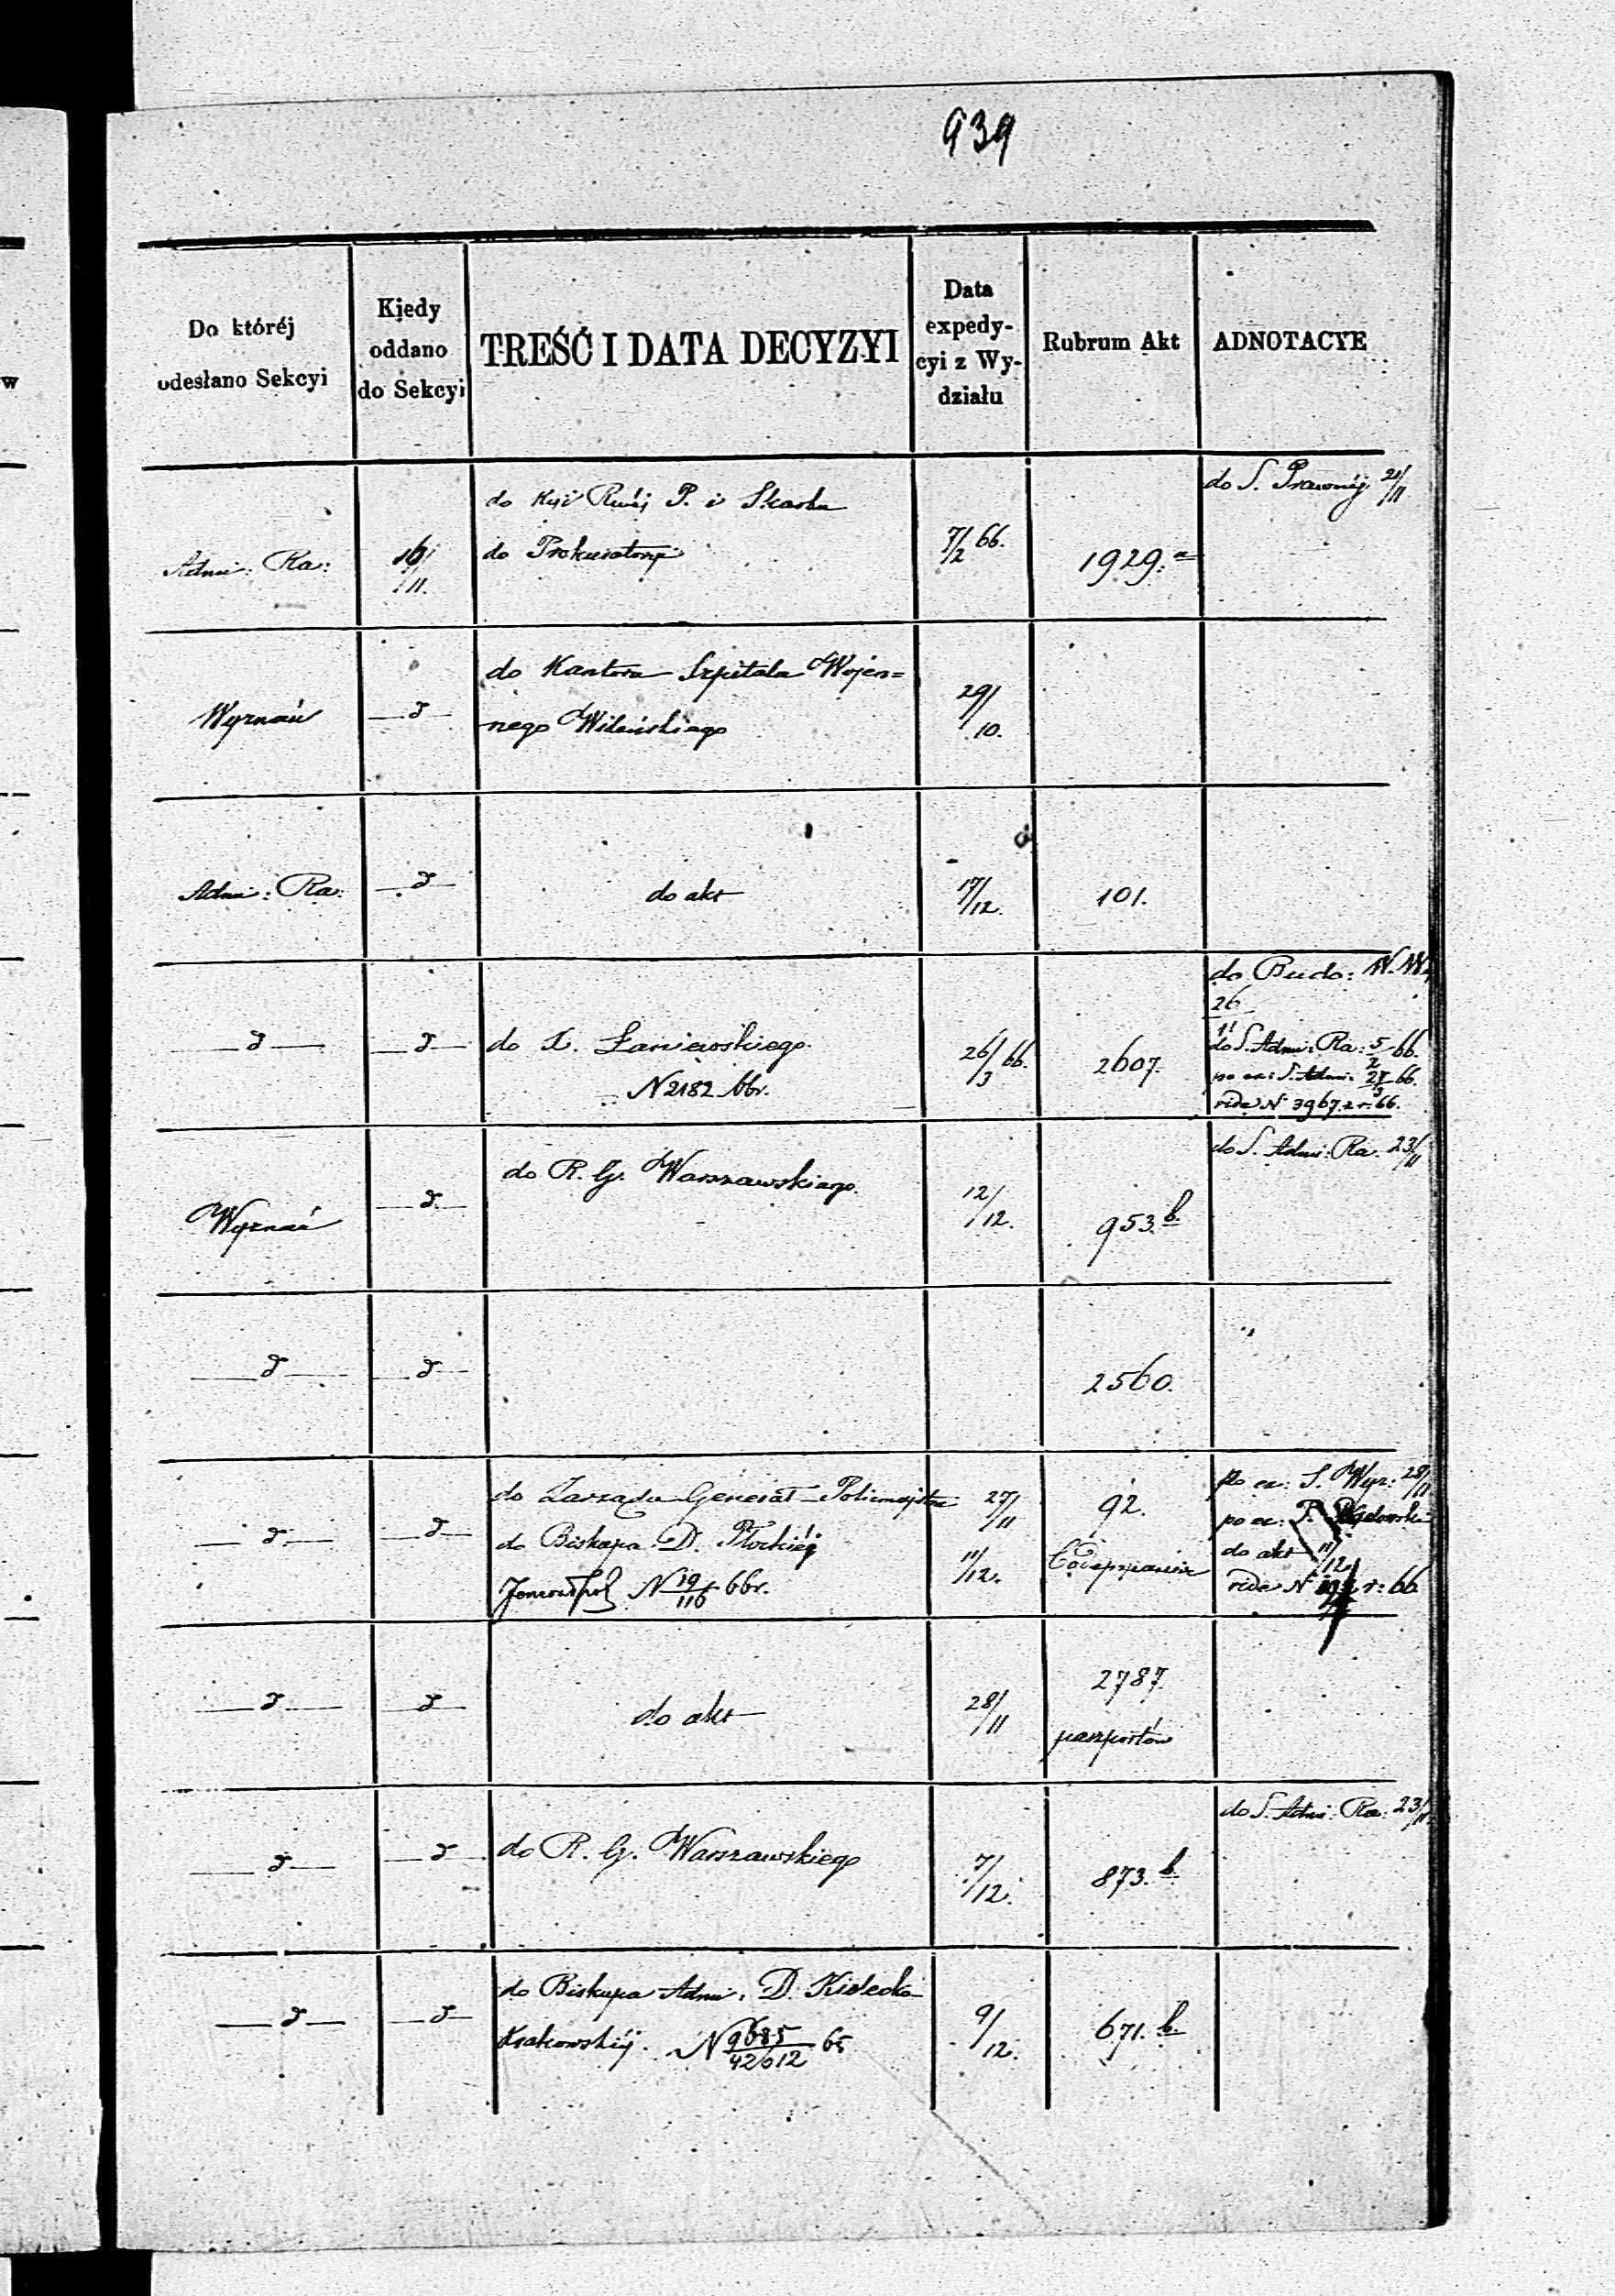 939
w
Do któréj
odesłano Sekcyi
Kiedy
oddano
do Sekcyi
TREŚĆ I DATA DECYZYI
Data
expedy-
cyi z Wy-
działu
Rubrum Akt
ADNOTACYE
Adm: Ra:
16/11.
do Kyi Rwéj P. i Skarbu
do Prokuratoryi
7/2 66.
1929.a
do S. Prawnéj 21/11
Wyznań
d
do Kantora Szpitala Wojen=
nego Wileńskiego
29/10.
Adm: Ra:
d
do akt
17/12.
101.
d
d
do X. Łaniewskiego.
N 2182 66r.
26/3 66.
2607.
do Budo: W.
26
11
do S. Adm: Ra: 5/2 66.
po ex: S. Adm: 66.
vide N 3967 z r. 66.
Wyznań
d
do R. G. Warszawskiego.
12/12.
953.b.
do S. Adm: Ra. 23/11
d
d
2560.
d
d
do Zarządu Generał-Policmajstra
do Biskupa D. Płockiéj
N 19/116 66r.
27/11
11/12.
92.
po ex: S. Wyz: 28/11
po ex: P.
do akt 11/12
vide N r: 66
d
d
do akt
28/11
2787.
paszportów
d
d
do R. G. Warszawskiego
7/12.
873.b.
do S. Adm: Ra: 23/11
d
d
do Biskupa Adm: D. Kielecko
Krakowskiéj. N 9685/42612 65
9/12.
671.b.